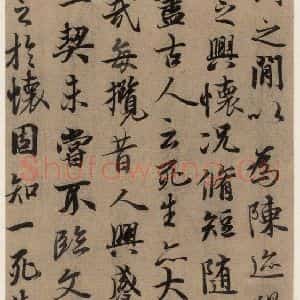 之閒以為陳迹
之興懷況脩短隨
盡古人云死生亦大
哉每攬昔人興感
一契未嘗不臨文
之於懷固知一死